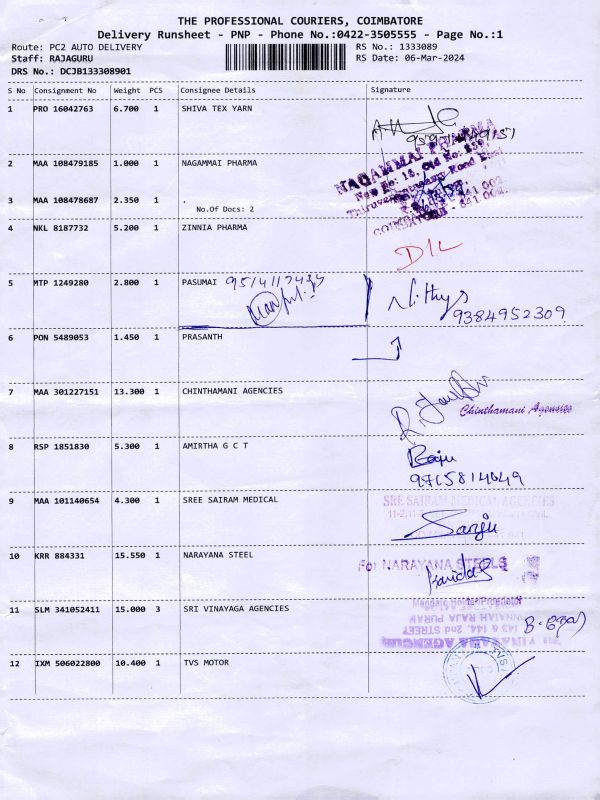 THE PROFESSIONAL COURIERS, COIMBATORE
Delivery Runsheet - PNP - Phone No.:0422-3505555 - Page No.:1
Route: PC2 AUTO DELIVERY RS No.: 1333089
Staff: RAJAGURU RS Date: 06-Mar-2024
DRS No.: DCJB133308901
S No Consignment No Weight PCS Consignee Details Signature
1 PRO 16042763 6.700 1 SHIVA TEX YARN
2 MAA 108479185 1.000 1 NAGAMMAI PHARMA
NAGAMMAI PHARMA
3 MAA 108478687 2.350 1 .
No.Of Docs: 2
COIMBATORE - 641 002.
4 NKL 8187732 5.200 1 ZINNIA PHARMA
D/L
5 MTP 1249280 2.800 1 PASUMAI
Nithys
9384952309
6 PON 5489053 1.450 1 PRASANTH
7 MAA 301227151 13.300 1 CHINTHAMANI AGENCIES
Chinthamani Agencies
8 RSP 1851830 5.300 1 AMIRTHA G C T
Raju
9715814049
9 MAA 101140654 4.300 1 SREE SAIRAM MEDICAL
SRE SAIRAM MEDICAL AGENCIES
Sanju
10 KRR 884331 15.550 1 NARAYANA STEEL
For NARAYANA STEELS
11 SLM 341052411 15.000 3 SRI VINAYAGA AGENCIES
143 & 144, 2nd STREET
12 IXM 506022800 10.400 1 TVS MOTOR